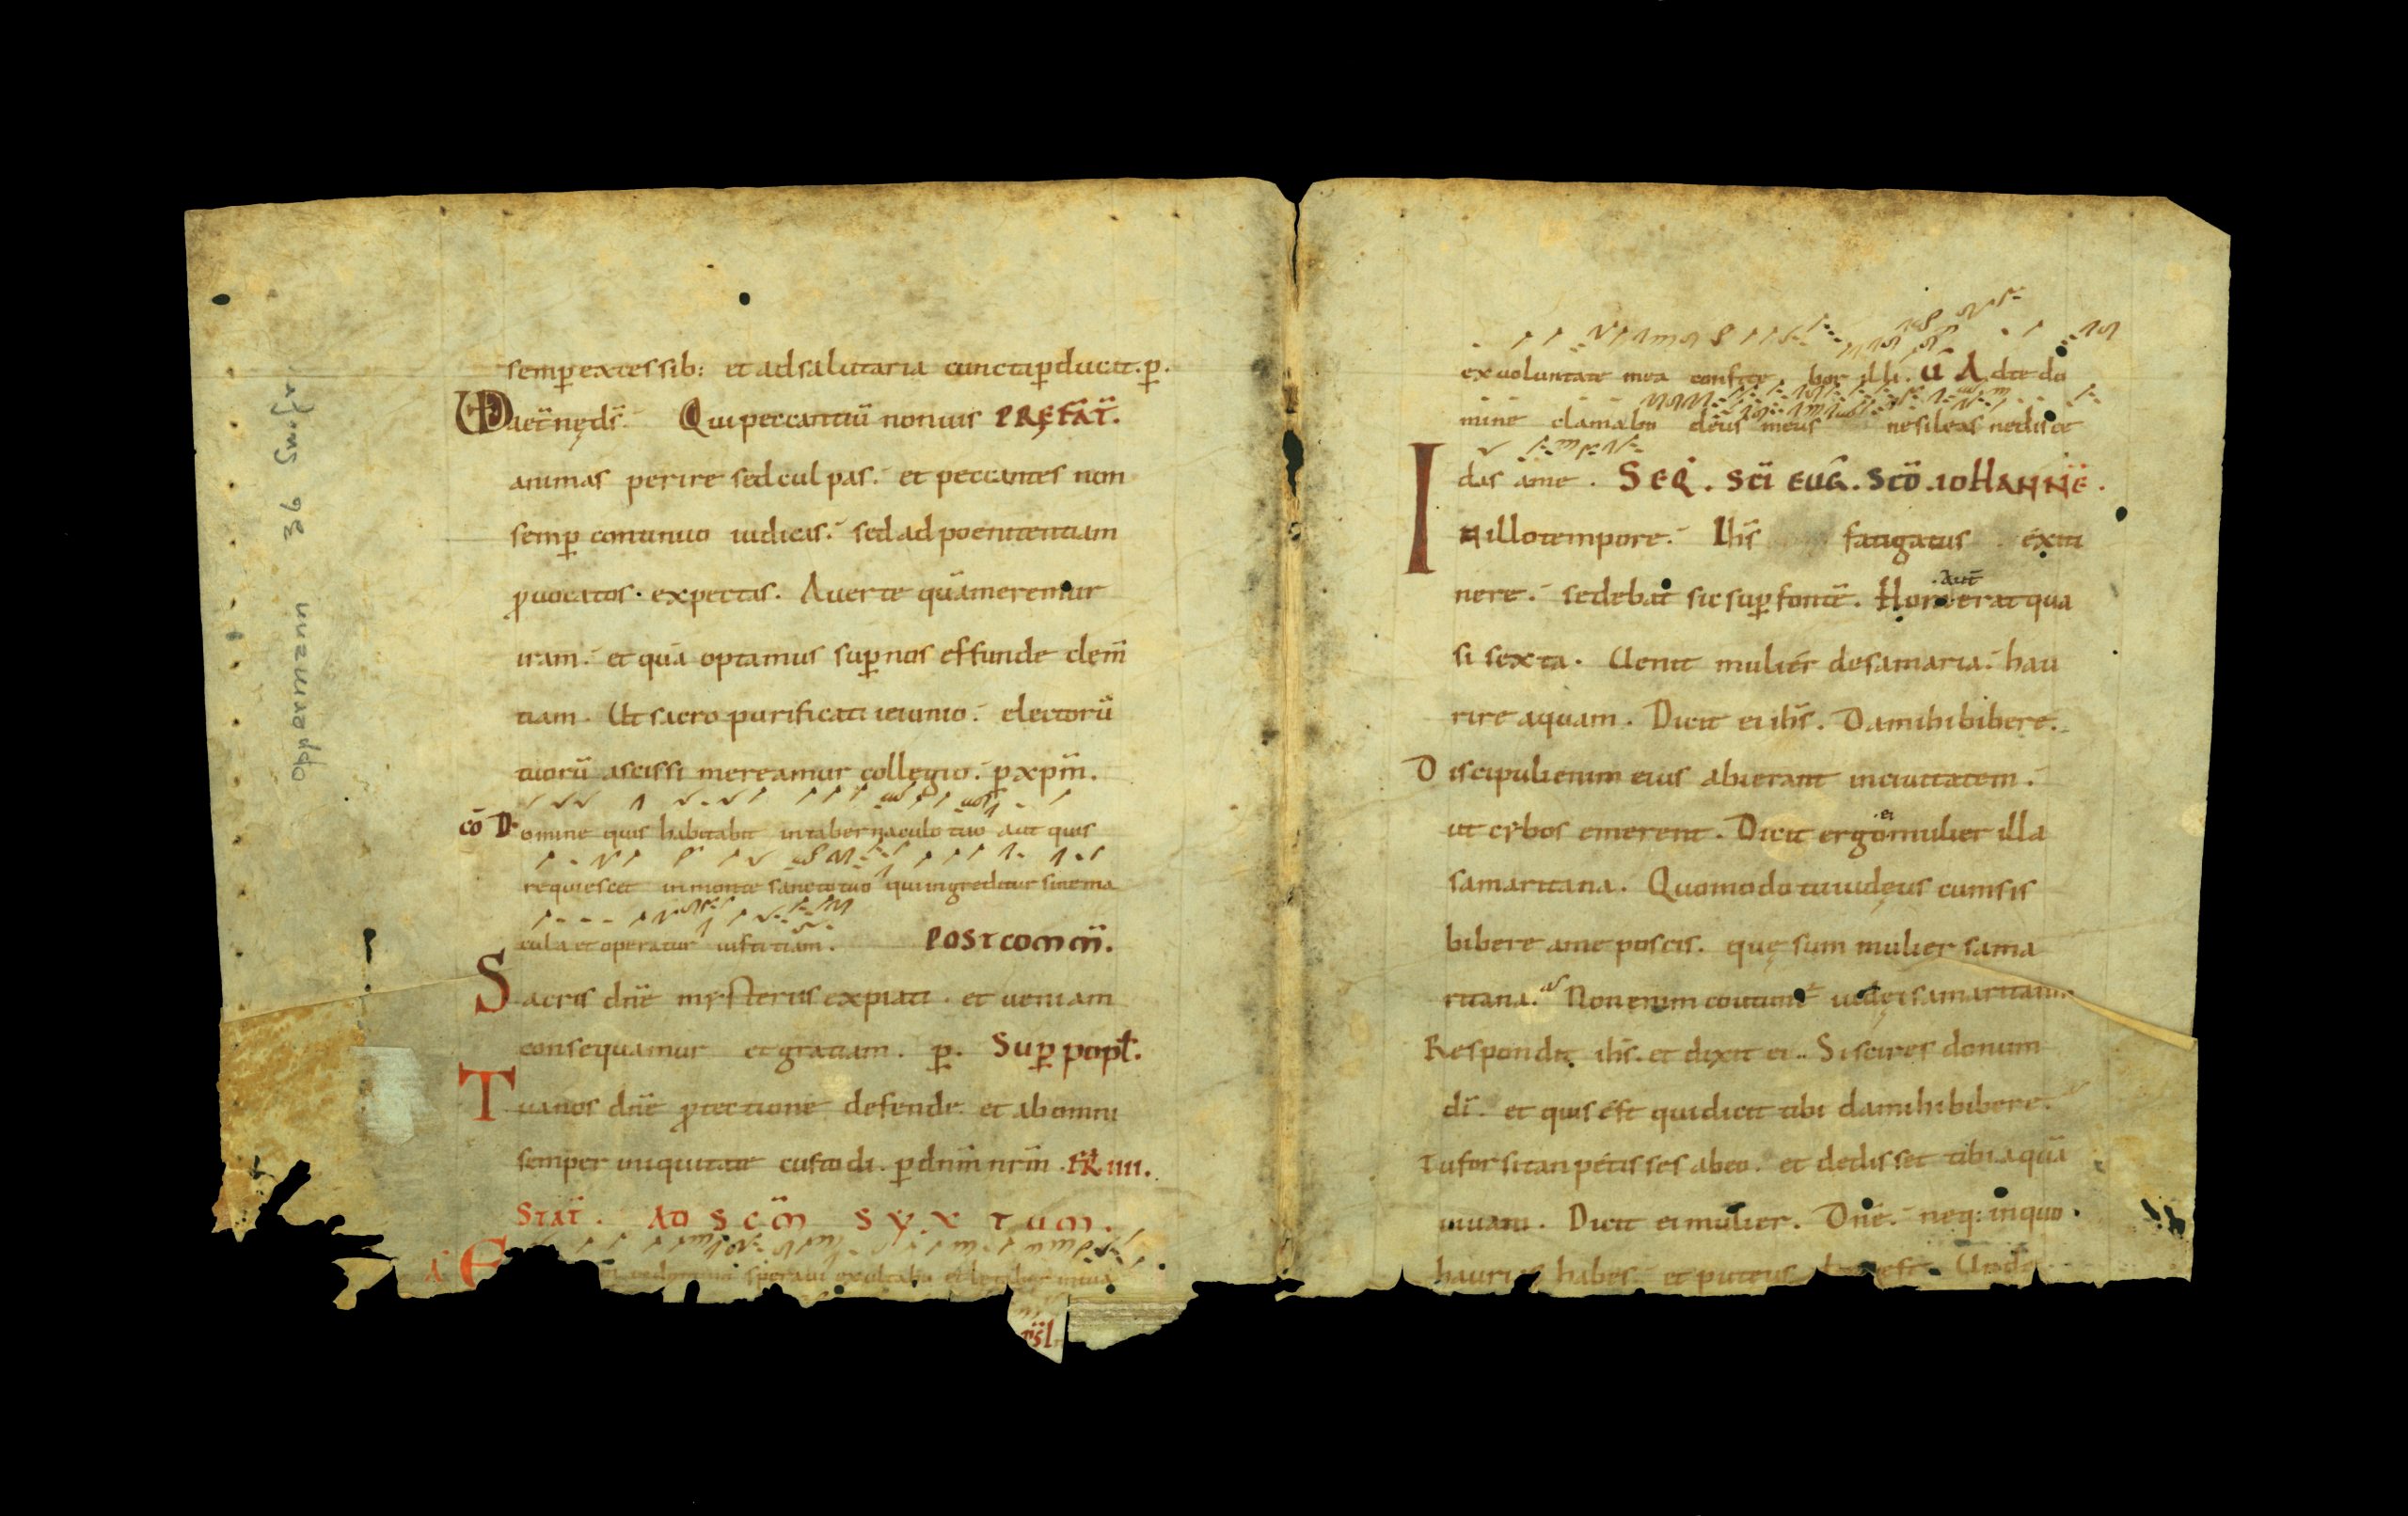 semp̱ excessib: et ad salutaria cuncta p̱ducat. p̱.
UD aet̄nę d̄s. Qui peccantiū non uis PREFAT̄.
animas perire sed culpas. et peccantes non
semp̱ continuo iudicas. sed ad poenitentiam
ꝓuocatos. expectas. Auerte quā meremur
iram. et quā optamus sup̱ nos effunde clem̄
tiam. Ut sacro purificati ieiunio. electorū
tuorū ascissi mereamur collegio. p̱ xp̄m.
CŌ Domine quis habitabit in tabernaculo tuo aut quis
requiescet in monte sancto tuo qui ingreditur sine ma
cula et operatur iustitiam. POSTCOMM̄.
Sacris dn̄e mysteriis expiati. et ueniam
consequamur et gratiam. p̱. Sup̱ popl̄.
Tua nos dn̄e ꝓtectione defende. et ab omni
semper iniquitate custodi. p̱ dn̄m nr̄m. FR̄ IIII.
STAT̄. AD SC̄M SYXTUM.
A E speraui exultabo et
psl̄
ex uoluntate mea confite bor illi. U̅ Ad te do
mine clamabo deus meus ne sileas ne disce
das a me. SEQ̄. SCĪ EUG̅. SCD̄. IOHANNE.
In illo tempore. Ih̄s fatigatus ex iti
aut̄
nere. sedebat sic sup̱ fontē. Hora erat qua
si sexta. Uenit mulier de samaria. hau
rire aquam. Dicit ei ih̄s. Da mihi bibere.
Discipuli enim eius abierant in ciuitatem.
ei
ut cybos emerent. Dicit ergo mulier illa
samaritana. Quomodo tu iudęus cum sis
bibere a me poscis. quę sum mulier sama
ritana. Non enim coutunt̄ iudęi samaritanis
Respondit ih̄s. et dixit ei.. Si scires donum
dī. et quis est qui dicit tibi da mihi bibere.
Tu forsitan petisses ab eo. et dedisset tibi aquā
uiuam. Dicit ei mulier. Dn̄e. neq: in quo
haurias habes. et puteus est. Unde
Oppermann 36 Smfr,